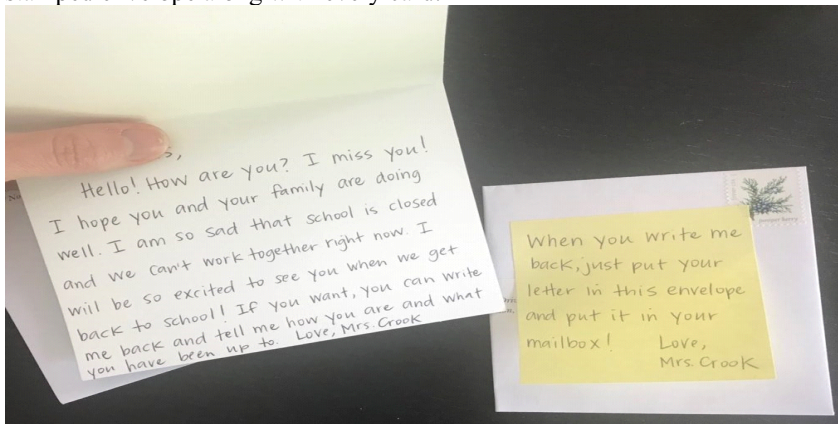 s,
Hello! How are you? I miss you!
I hope you and your family are doing
well. I am so sad that school is closed
and we can't work together right now. I
will be so excited to see you when we get
back to school! If you want, you can write
me back and tell me how you are and what
you have been up to. Love, Mrs. Crook
When you write me
back, just put your
letter in this envelope
and put it in your
mailbox! Love,
Mrs. Crook